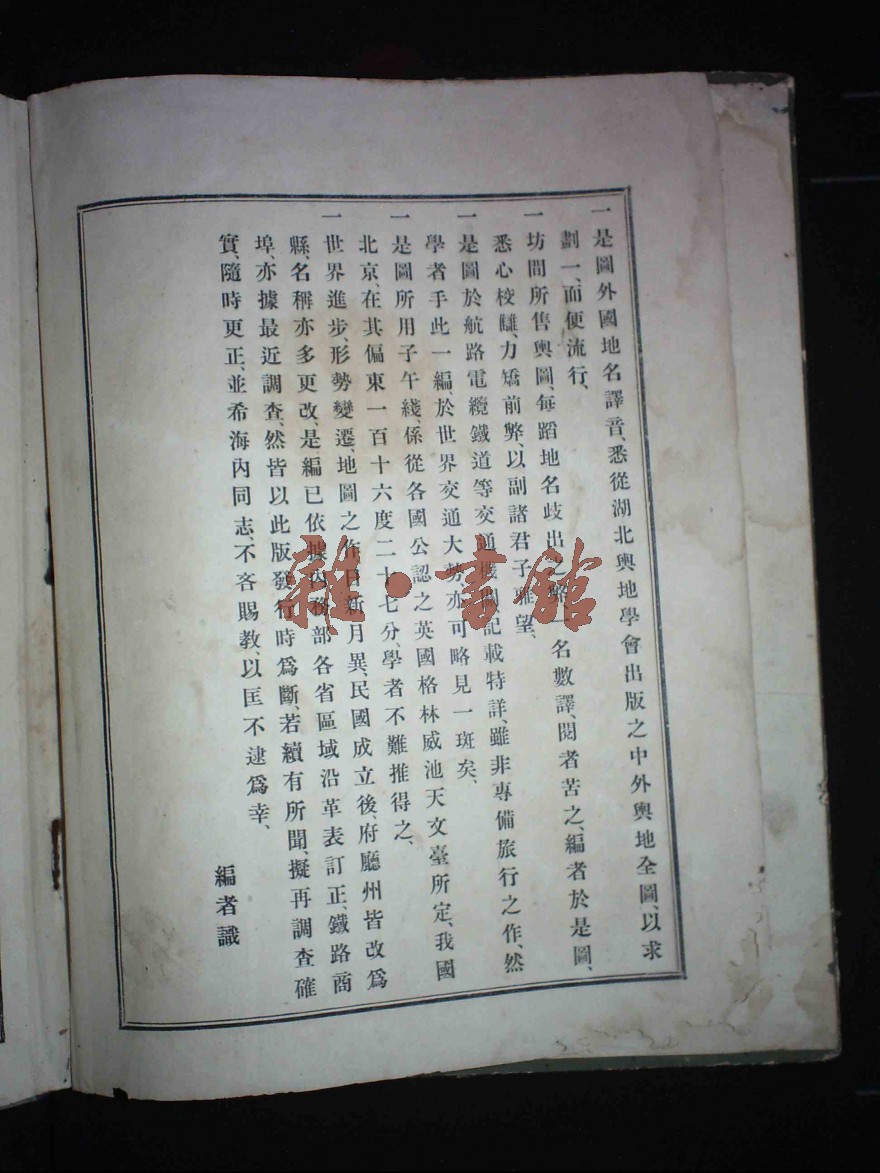 一是圖外國地名譯音、悉從湖北輿地學會出版之中外輿地全圖、以求
劃一、而便流行、
一坊間所售輿圖、每蹈地名歧出之弊、一名數譯、閱者苦之、編者於是圖、
悉心校讎、力矯前弊、以副諸君子雅望、
一是圖於航路電纜鐵道等交通機關、記載特詳、雖非專備旅行之作、然
學者手此一編、於世界交通大勢、亦可略見一斑矣、
一是圖所用子午綫、係從各國公認之英國格林威池天文臺所定、我國
北京、在其偏東一百十六度二十七分、學者不難推得之、
一世界進步、形勢變遷、地圖之作、日新月異、民國成立後、府廳州皆改爲
縣、名稱亦多更改、是編已依據內務部各省區域沿革表訂正、鐵路商
埠、亦據最近調查、然皆以此版發行時爲斷、若續有所聞、擬再調查確
實、隨時更正、並希海內同志、不吝賜教、以匡不逮爲幸、
編者識
雜·書館